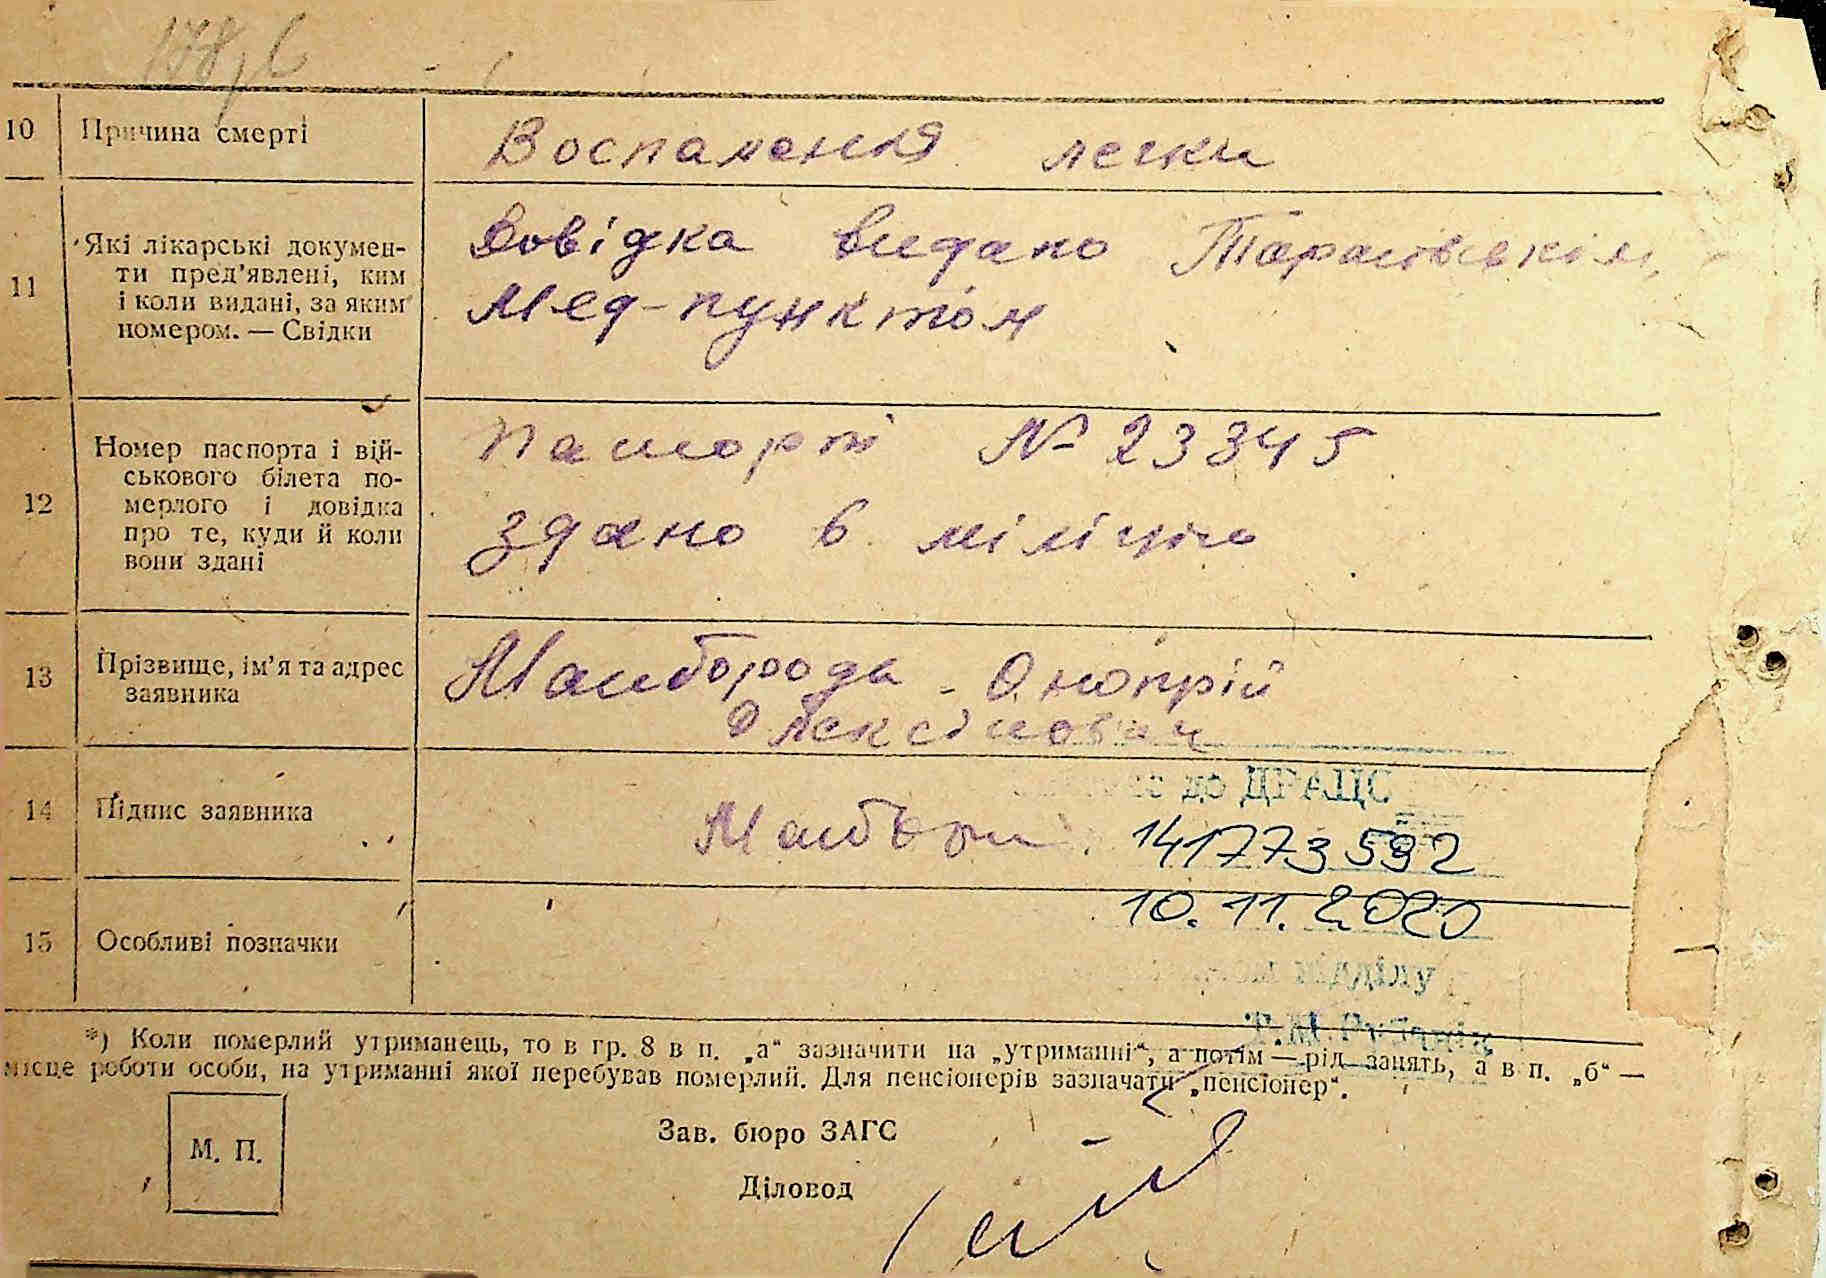 10 Причина смерті Воспалення легки
11 Які лікарські докумен-
ти пред’явлені, ким
і коли видані, за яким
номером. — Свідки
Довідка видано
Мед-пунктом
12 Номер паспорта і вій-
ськового білета по-
мерлого і довідка
про те, куди й коли
вони здані
Паспорт № 23345
здано в міліцію
13 Прізвище, ім’я та адрес
заявника
Майборода Онопрій
Олексійович
14 Підпис заявника
до ДРАЦС
141773592
10.11.2020
15 Особливі позначки
відділу
*) Коли померлий утриманець, то в гр. 8 в п. „а“ зазначити на „утриманні“, а потім — рід занять, а в п. „б“ —
місце роботи особи, на утриманні якої перебував померлий. Для пенсіонерів зазначати „пенсіонер“.
М. П.
Зав. бюро ЗАГС
Діловод